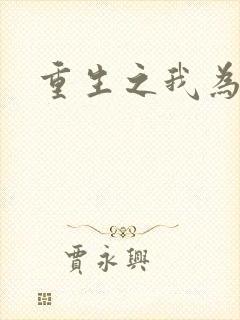 重生之我為
賈永興